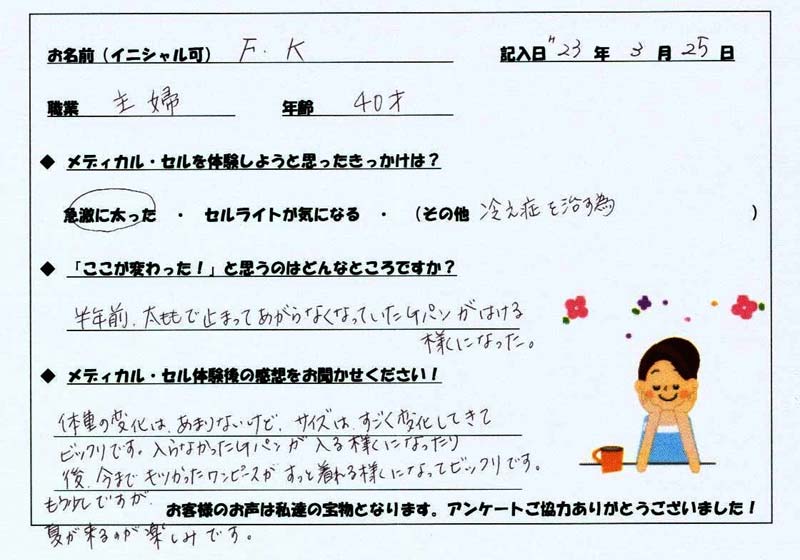 お名前（イニシャル可） F．K 記入日 "23 年 3 月 25 日
職業 主婦 年齢 40才
◆ メディカル・セルを体験しようと思ったきっかけは？
急激に太った ・ セルライトが気になる ・ （その他 冷え症を治す為 ）
◆ 「ここが変わった！」と思うのはどんなところですか？
半年前、太ももで止まってあがらなくなっていたGパンがはける
様になった。
◆ メディカル・セル体験後の感想をお聞かせください！
体重の変化は、あまりないけど、サイズは、すごく変化してきて
ビックリです。入らなかったGパンが入る様になったり
後、今までキツかったワンピースがすっと着れる様になってビックリです。
もう少しですが、
夏が来るのが楽しみです。
お客様のお声は私達の宝物となります。アンケートご協力ありがとうございました！